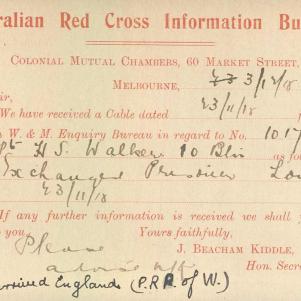 ralian Red Cross Information Bu
COLONIAL MUTUAL CHAMBERS, 60 MARKET STREET,
MELBOURNE, 3/12/18
ir,
We have received a Cable dated 23/11/18
W. & M. Enquiry Bureau in regard to No. 101
H S. Walker 10 Bln as fo
Exchanged Prisoner Lo
23/11/18
If any further information is received we shall
o you. Yours faithfully,
Please J. BEACHAM KIDDLE,
advise Hon. Secre
rrived England (P.R. of W.)